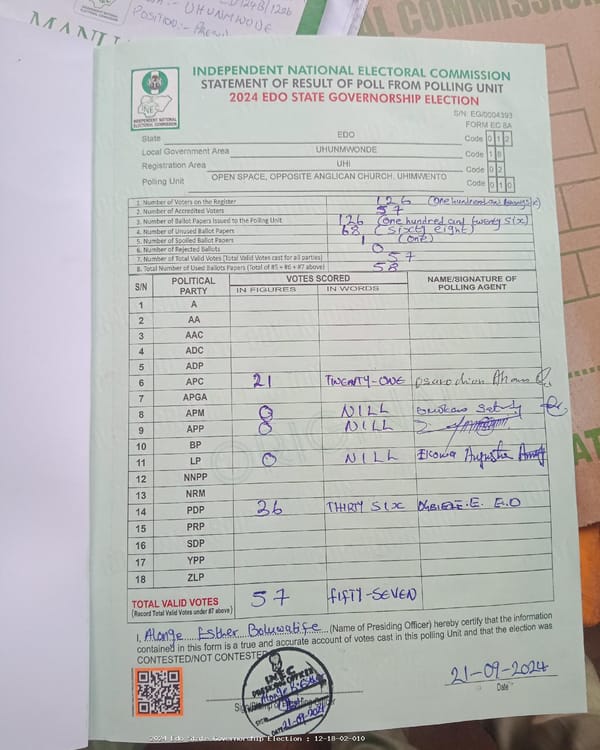 UHUNMWODE
POSITION:-
MANU
AL COMMISSION
INDEPENDENT NATIONAL ELECTORAL COMMISSION
STATEMENT OF RESULT OF POLL FROM POLLING UNIT
2024 EDO STATE GOVERNORSHIP ELECTION
INDEPENDENT NATIONAL
ELECTORAL COMMISSION
S/N: EG/0004393
FORM EC 8A
State EDO Code 0 1 2
Local Government Area UHUNMWONDE Code 1 8
Registration Area UHI Code 0 2
Polling Unit OPEN SPACE, OPPOSITE ANGLICAN CHURCH, UHIMVENTO Code 0 1 0
1. Number of Voters on the Register 126 (One hundred and twenty six)
2. Number of Accredited Voters 57
3. Number of Ballot Papers Issued to the Polling Unit 126 (One hundred and twenty six)
4. Number of Unused Ballot Papers 68 (Sixty eight)
5. Number of Spoiled Ballot Papers 1 (One)
6. Number of Rejected Ballots 0
7. Number of Total Valid Votes (Total Valid Votes cast for all parties) 57
8. Total Number of Used Ballots Papers (Total of #5 + #6 + #7 above) 58
S/N POLITICAL PARTY VOTES SCORED NAME/SIGNATURE OF POLLING AGENT
IN FIGURES IN WORDS
1 A
2 AA
3 AAC
4 ADC
5 ADP
6 APC 21 TWENTY-ONE
7 APGA
8 APM 0 NILL
9 APP 0 NILL
10 BP
11 LP 0 NILL
12 NNPP
13 NRM
14 PDP 36 THIRTY SIX E. E.O
15 PRP
16 SDP
17 YPP
18 ZLP
TOTAL VALID VOTES 57 FIFTY-SEVEN
(Record Total Valid Votes under #7 above)
I, Alonge Esther Boluwatife (Name of Presiding Officer) hereby certify that the information
contained in this form is a true and accurate account of votes cast in this polling Unit and that the election was
CONTESTED/NOT CONTESTED
INEC
PRESIDING OFFICER
DATE 21-09-2024
21-09-2024
Date
2024 Edo State Governorship Election : 12-18-02-010